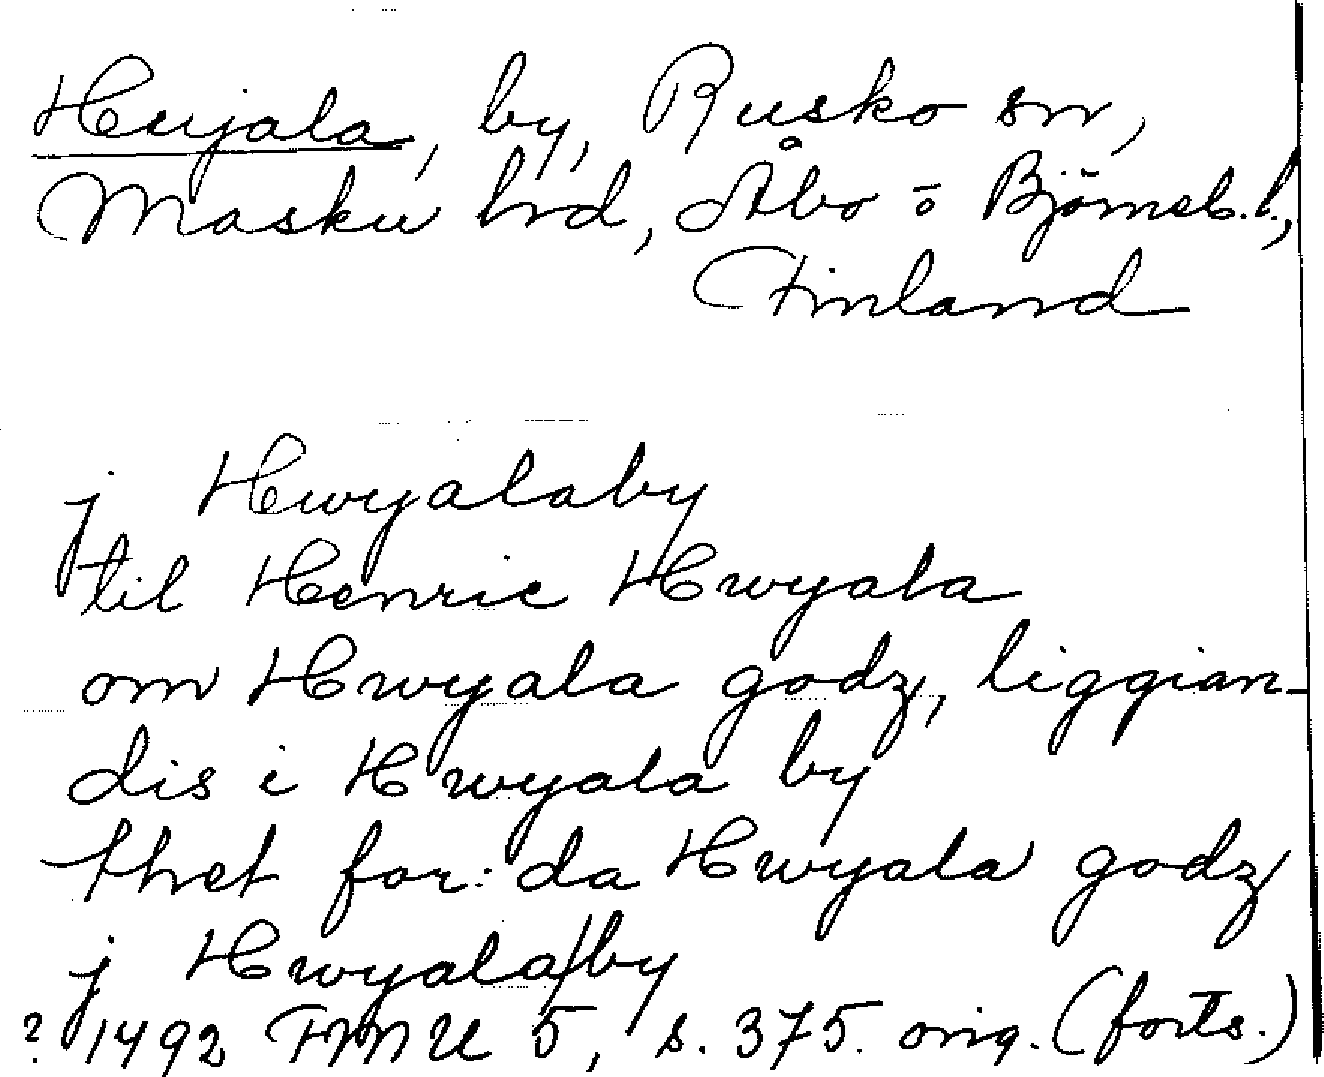 Hujala, by, Rusko sn,
Masku hd, Åbo o Björneb. l.,
Finland
j Hwyalaby
til Henric Hwyala
om Hwyala godz, liggian-
dis i Hwyala by
thet for: da Hwyala godz
j Hwyala/by
? 1492 FMU 5, s. 375. orig. (forts.)